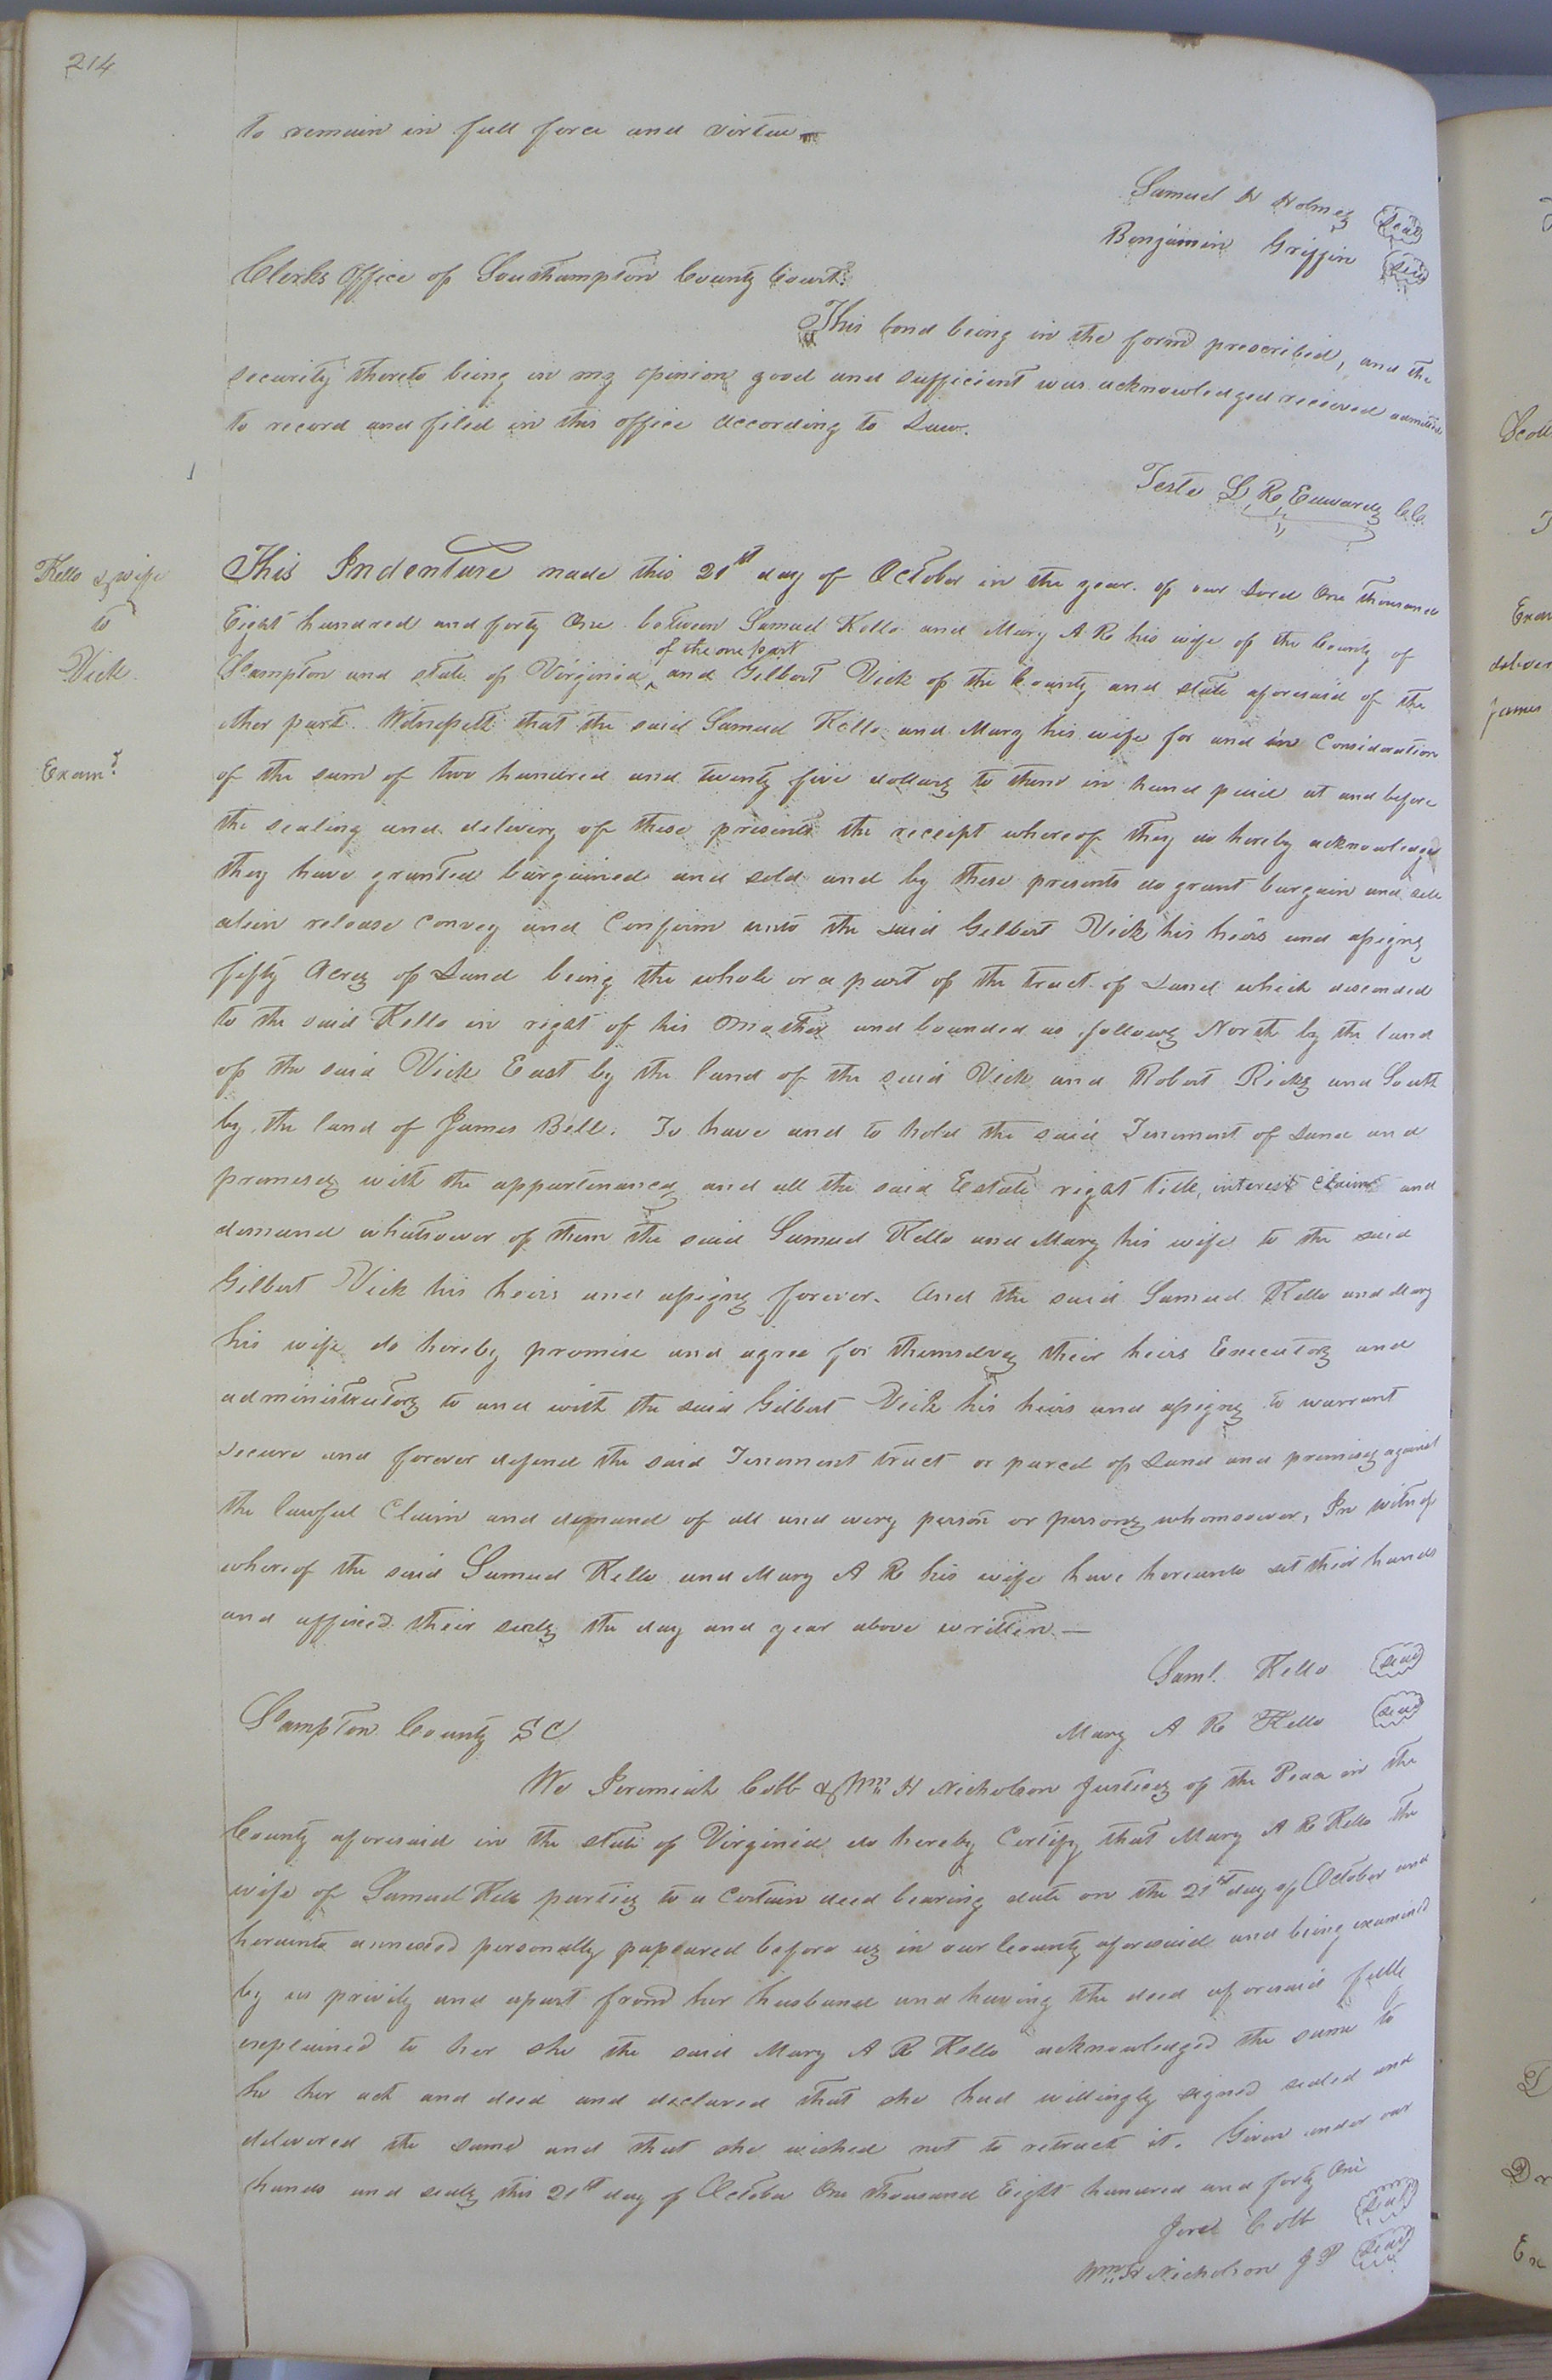 214
to remain in full force and virtue
Samuel H Holmes seal
Benjamin Griffin seal
Clerks Office of Southampton County Court:
This bond being in the form prescribed, and the
security thereto being in my opinion good and sufficient was acknowledged recieved admitted
to record and filed in this office according to Law.
Teste L R Edwards CC
Kello & wife
to
Vick
Examd
This Indenture made this 21st day of October in the year of our Lord One thousand
Eight hundred and forty One between Samuel Kello and Mary A R his wife of the County of
of the one part
S'hampton and state of Virginia ^ and Gilbert Vick of the County and state aforesaid of the
other part. Witnesseth that the said Samuel Kello and Mary his wife for and in Consideration
of the sum of two hundred and twenty five dollars to them in hand paid at and before
the sealing and delivery of these presents the receipt whereof they do hereby acknowledged
they have granted bargained and sold and by these presents do grant bargain and sell
alien release Convey and Confirm unto the said Gilbert Vick his heirs and assigns
fifty Acres of Land being the whole or a part of the tract of Land which descended
to the said Kello in right of his Mother and bounded as follows North by the land
of the said Vick East by the land of the said Vick and Robert Ricks and South
by the land of James Bell. To have and to hold the said Tenement of Land and
premises with the appurtenances and all the said Estate right title, interest Claim and
demand whatsoever of them the said Samuel Kello and Mary his wife to the said
Gilbert Vick his heirs and assigns forever. And the said Samuel Kello and Mary
his wife do hereby promise and agree for themselves their heirs Executors and
administrators to and with the said Gilbert Vick his heirs and assigns to warrant
secure and forever defend the said Tenement tract or parcel of Land and premises against
the lawful Claim and demand of all and every person or persons whomsoever, In witness
whereof the said Samuel Kello and Mary A R his wife have hereunto set their hands
and affixed their seals the day and year above written —
Saml. Kello seal
Mary A R Kello seal
S'hampton County SC
We Jeremiah Cobb & Wm H Nicholson Justices of the Peace in the
County aforesaid in the state of Virginia do hereby Certify that Mary A R Kello the
wife of Samuel Kello parties to a Certain deed bearing date on the 21st day of October and
hereunto annexed personally papeared before us in our County aforesaid and being examined
by us privily and apart from her husband and having the deed aforesaid fully
explained to her she the said Mary A R Kello acknowledged the same to
be her act and deed and declared that she had willingly signed sealed and
delivered the same and that she wished not to retract it. Given under our
hands and seals this 21st day of October One thousand Eight hundred and forty One
Jere Cobb seal
Wm H Nicholson J P seal